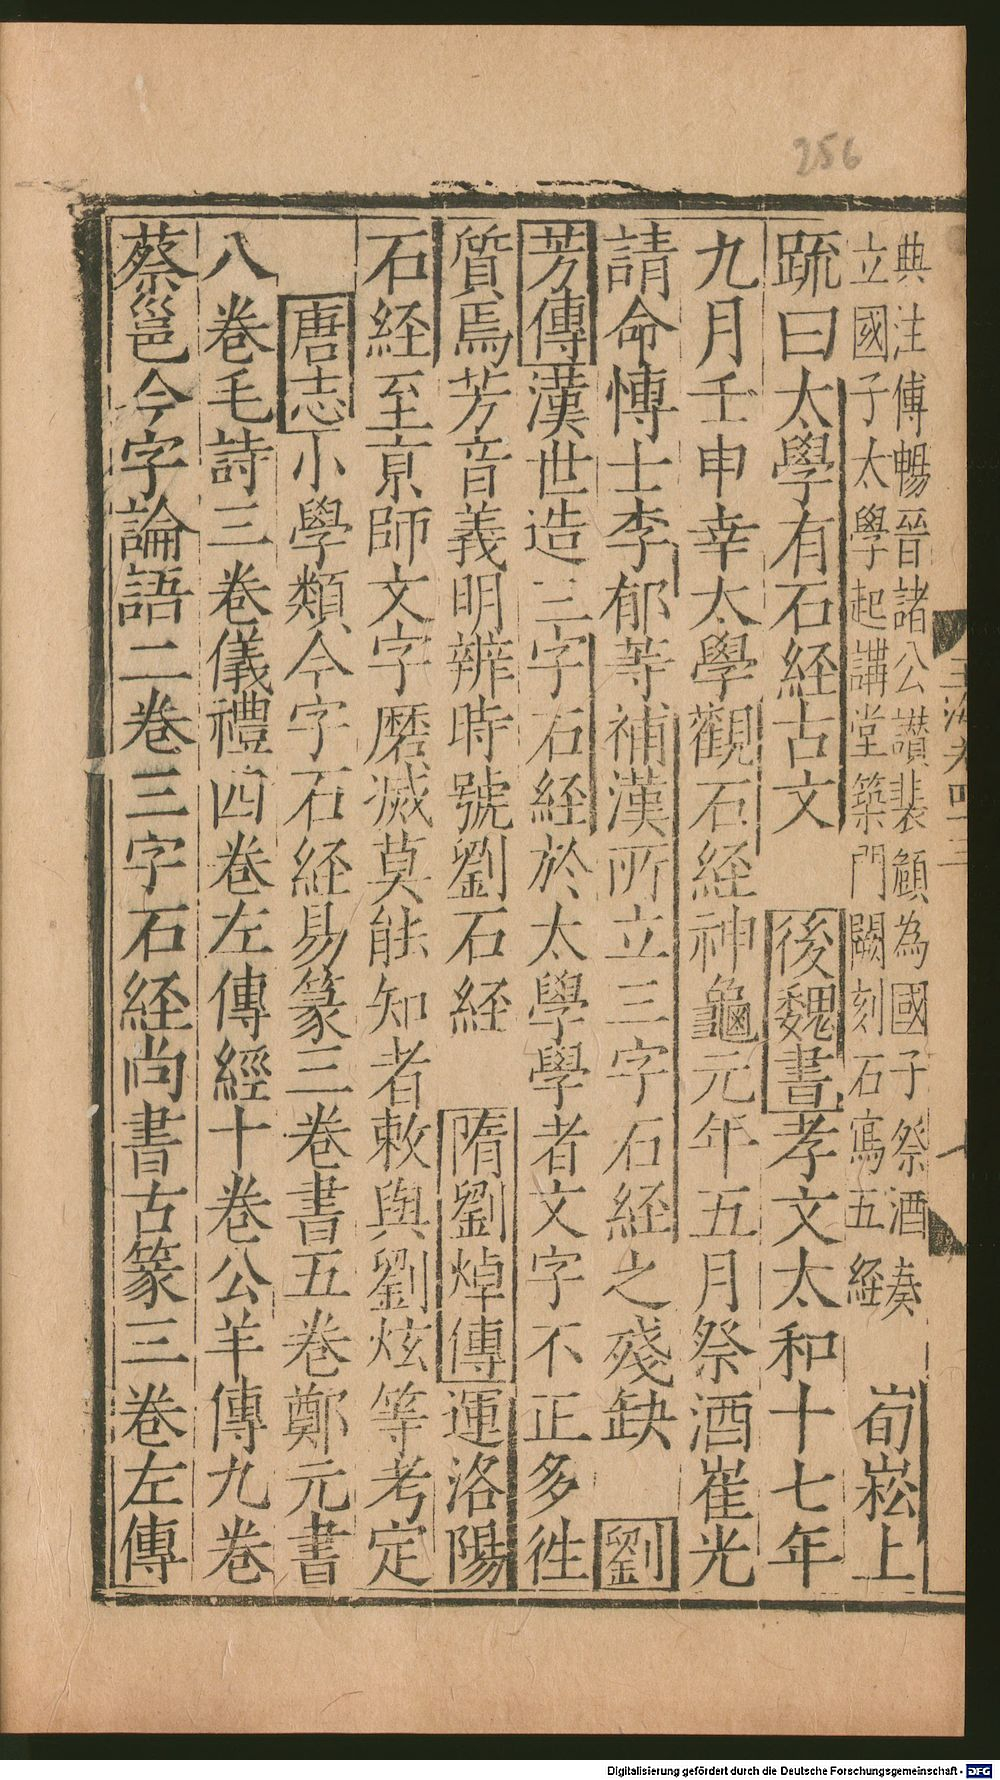 256
典注傅暢晉諸公讃裴頠為國子祭酒奏
立國子太學起講堂築門闕刻石寫五経
荀崧上
疏曰太學有石経古文　後魏書孝文太和十七年
九月壬申幸太學觀石経神龜元年五月祭酒崔光
請命慱士李郁等補漢所立三字石経之殘缺　劉
芳傳漢世造三字石経於太學學者文字不正多徃
質焉芳音義明辨時號劉石経　隋劉焯傳運洛陽
石経至亰師文字磨滅莫能知者敕與劉炫等考定
唐志小學類今字石経易篆三巻書五巻鄭元書
八巻毛詩三巻儀禮四巻左傳經十巻公羊傳九巻
蔡邕今字論語二巻三字石経尚書古篆三巻左傳
玉海卷四三
Digitalisierung gefördert durch die Deutsche Forschungsgemeinschaft - DFG